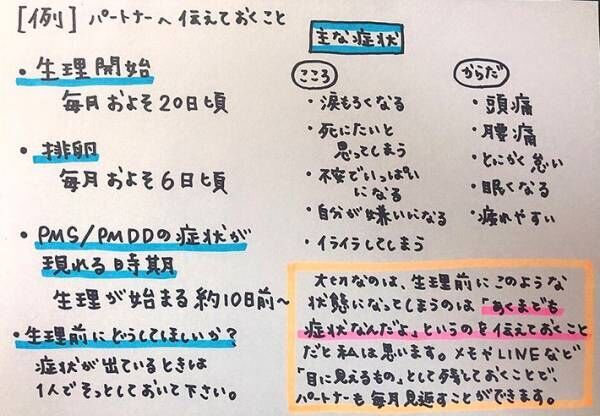 [例] パートナーへ伝えておくこと
・生理開始
毎月およそ20日頃
・排卵
毎月およそ6日頃
・PMS/PMDDの症状が
現れる時期
生理が始まる約10日前~
・生理前にどうしてほしいか?
症状が出ているときは
1人でそっとしておいて下さい。
主な症状
こころ
・涙もろくなる
・死にたいと
思ってしまう
・不安でいっぱい
になる
・自分が嫌いになる
・イライラしてしまう
からだ
・頭痛
・腰痛
・とにかく怠い
・眠くなる
・疲れやすい
大切なのは、生理前にこのような
状態になってしまうのは「あくまでも
症状なんだよ」というのを伝えておくこと
だと私は思います。メモやLINEなど
「目に見えるもの」として残しておくことで、
パートナーも毎月見返すことができます。